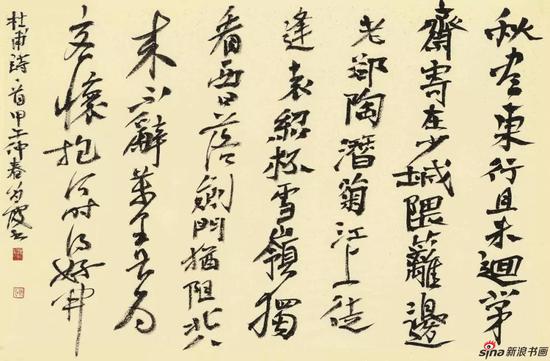 秋盡東行且未迴茅
齋寄在少城隈籬邊
老卻陶潛菊江上徒
逢袁紹杯雪嶺獨
看西日落劍門猶阻北人
來不辭萬里長為
客懷抱何時得好開
杜甫詩一首甲午仲春
sina新浪书画